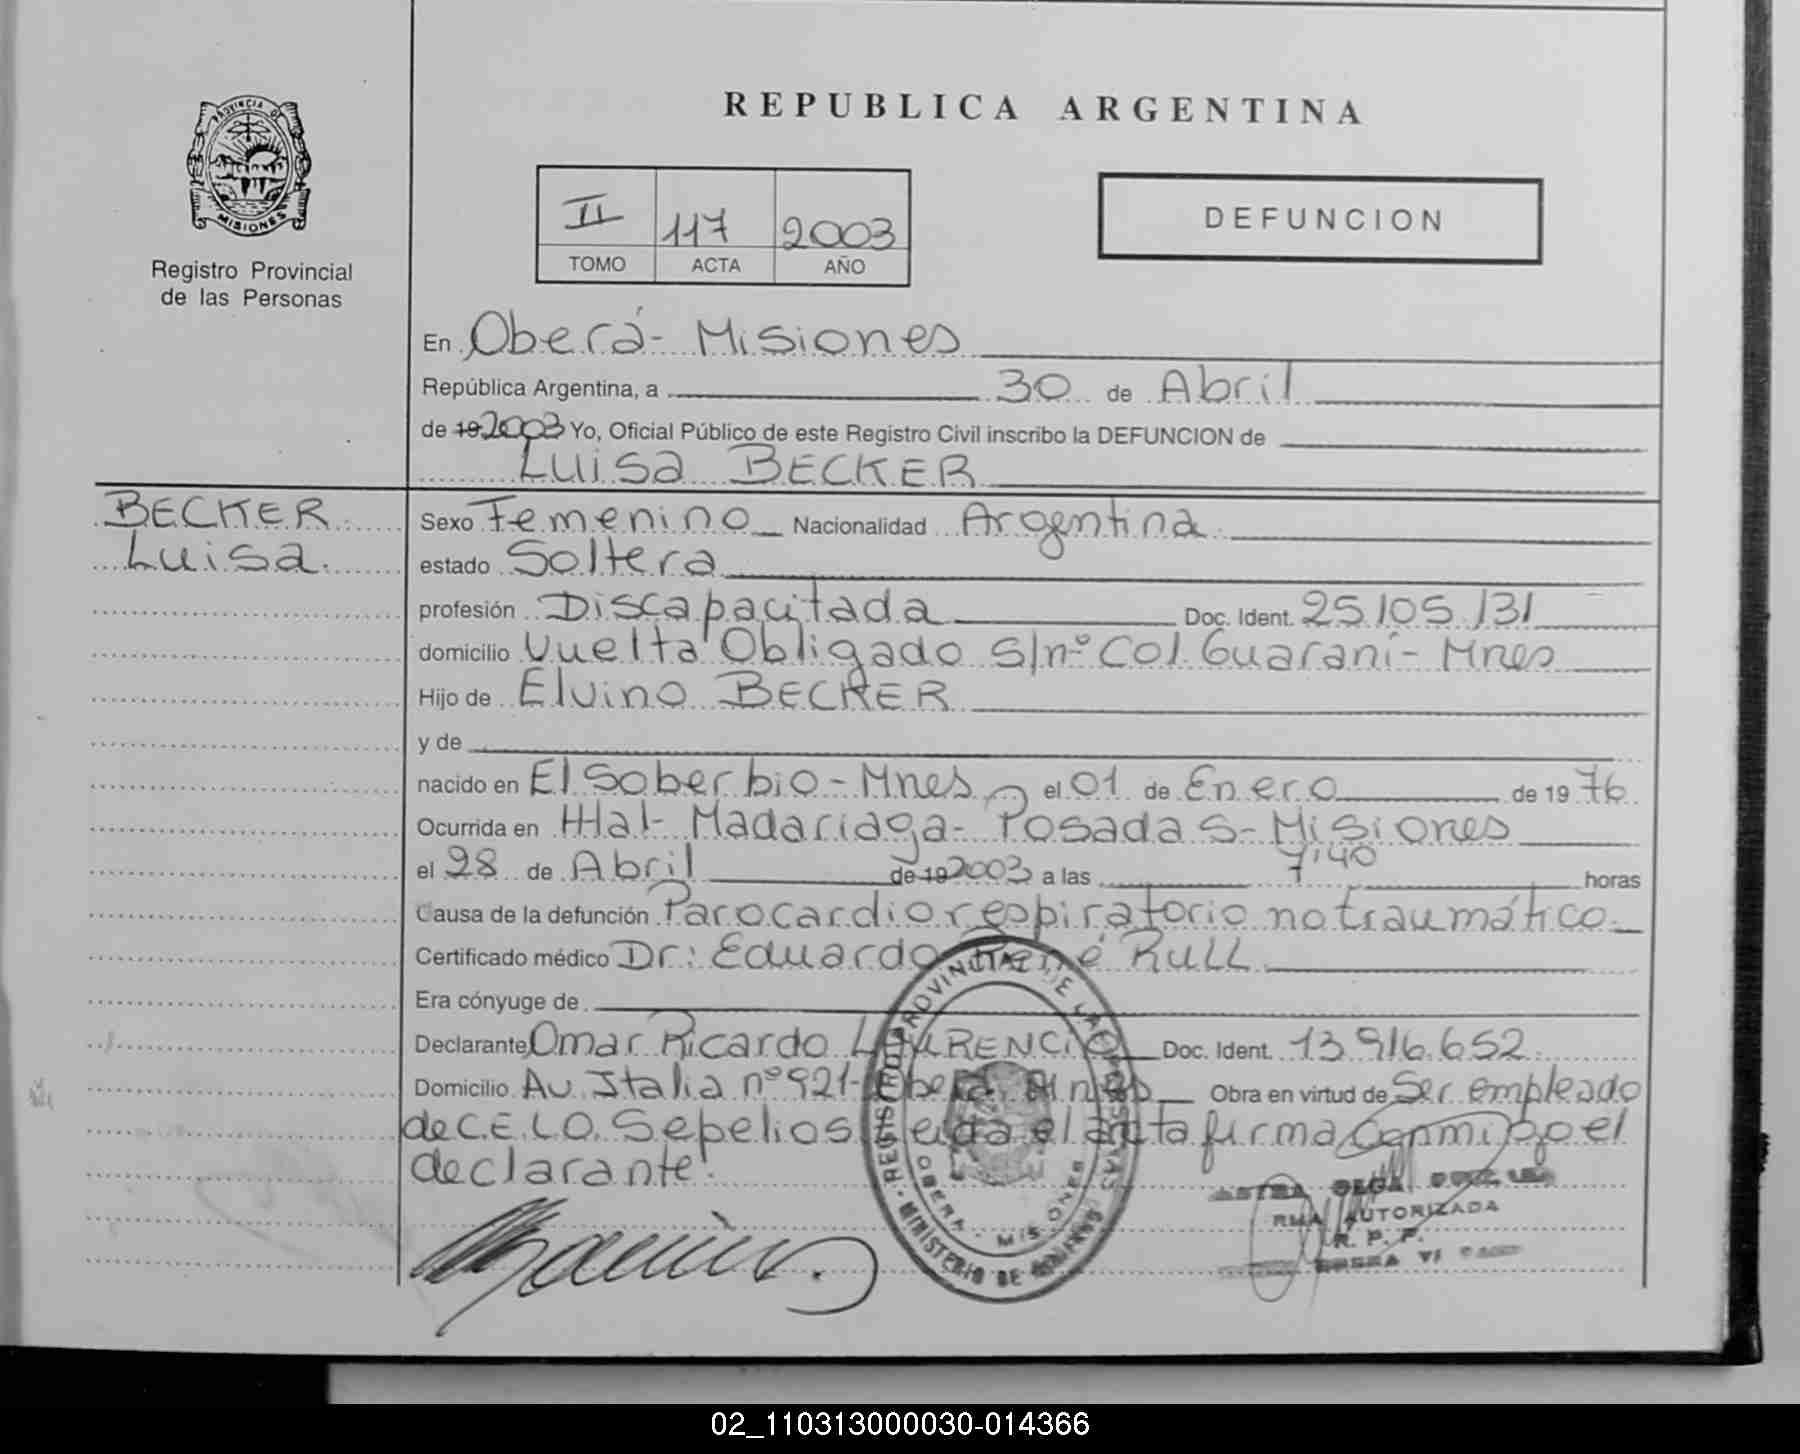 REPUBLICA ARGENTINA
PROVINCIA DE
MISIONES
Registro Provincial
de las Personas
II 117 2003
TOMO ACTA AÑO
DEFUNCION
En Oberá - Misiones
República Argentina, a 30 de Abril
de 19 2003 Yo, Oficial Público de este Registro Civil inscribo la DEFUNCION de
Luisa BECKER
BECKER
Luisa
Sexo Femenino Nacionalidad Argentina
estado Soltera
profesión Discapacitada Doc. Ident. 25.105.131
domicilio Vuelta Obligado S/nº Col. Guaraní - Mnes
Hijo de Elvino BECKER
y de
nacido en El Soberbio - Mnes el 01 de Enero de 19 76
Ocurrida en Htal - Madariaga - Posadas - Misiones
el 28 de Abril de 19 2003 a las 7:40 horas
Causa de la defunción Paro cardio respiratorio no traumático
Certificado médico Dr: Eduardo René RULL
Era cónyuge de
Declarante Omar Ricardo LAURENCIO Doc. Ident. 13.916.652
Domicilio Av. Italia nº 921 - Oberá Mnes Obra en virtud de Ser empleado
de C.E.L.O. Sepelios leida el acta firma conmigo el
declarante.
REGISTRO PROVINCIAL DE LAS PERSONAS
MINISTERIO DE GOBIERNO
OBERA - MISIONES
AUTORIZADA
R. P. P.
02_110313000030-014366